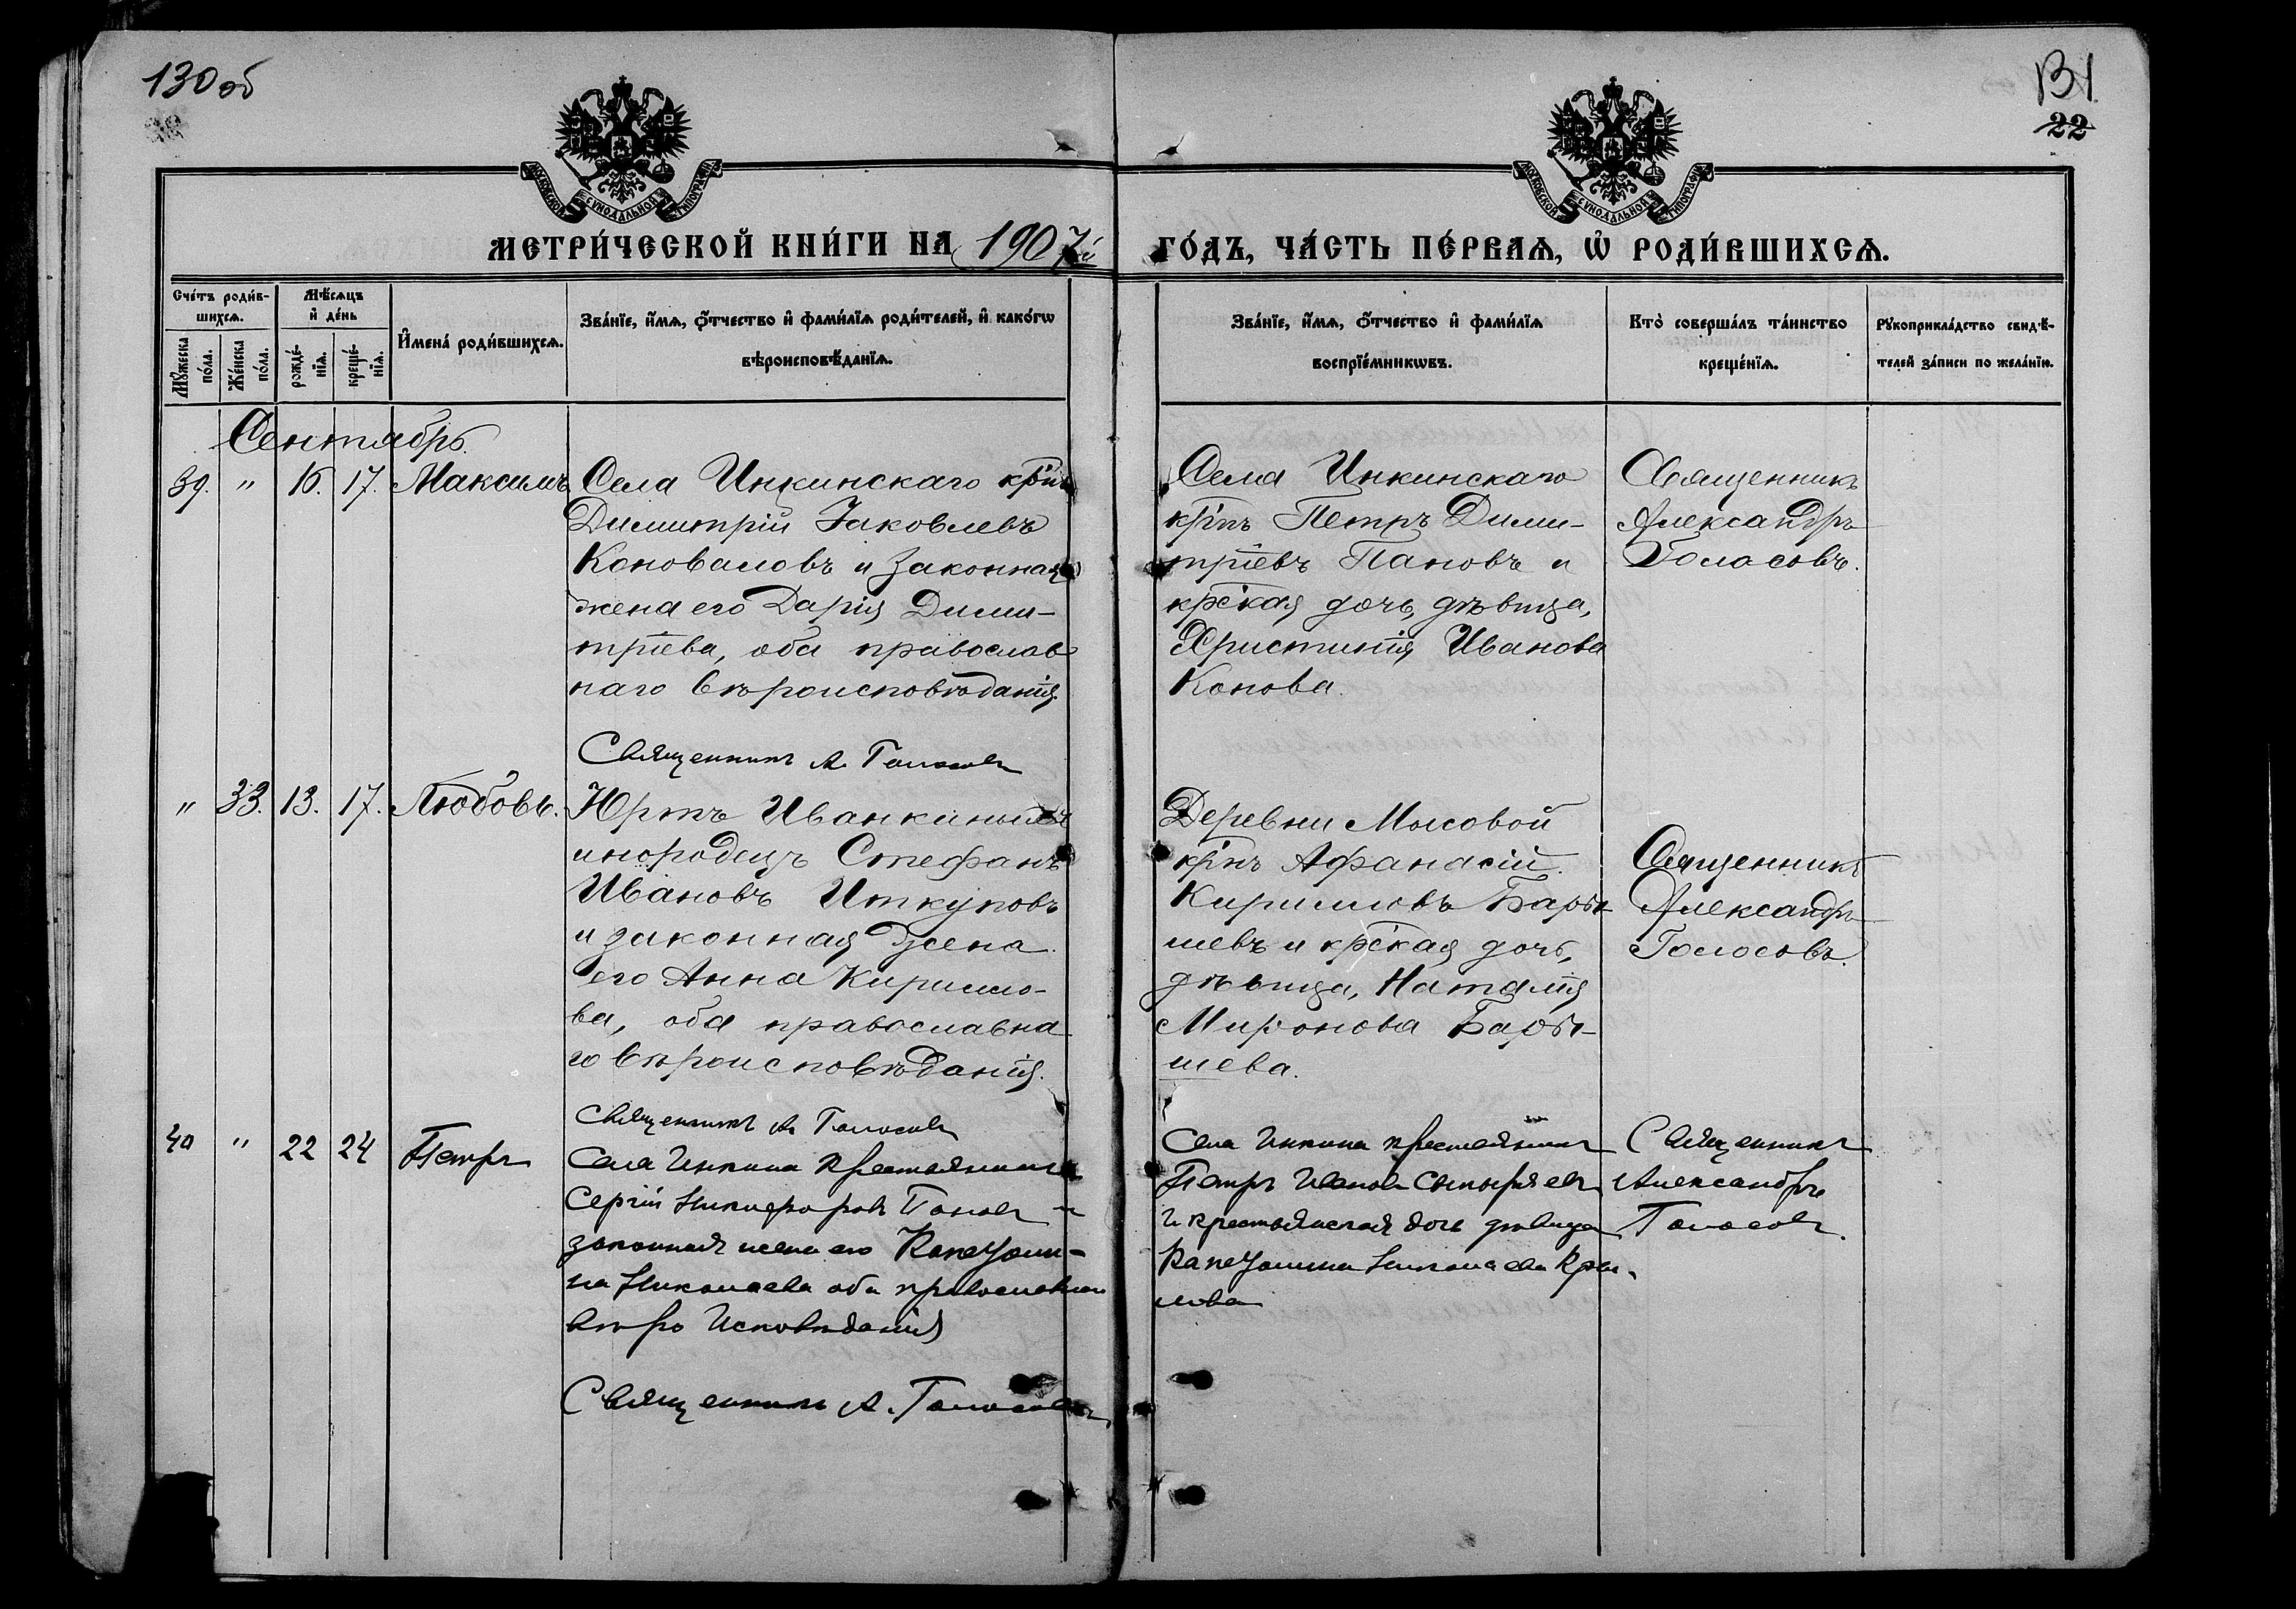 130 об
131
22
МОСКОВСКОЙ СѴНОДАЛЬНОЙ ТИПОГРАФІИ
МОСКОВСКОЙ СѴНОДАЛЬНОЙ ТИПОГРАФІИ
МЕТРИ́ЧЕСКОЙ КНИ́ГИ НА 1907й
ГО́ДЪ, ЧА́СТЬ ПЕ́РВАѦ, Ѡ҆ РОДИ́ВШИХСѦ.
Сче́тъ роди́в-
шихсѧ.
Мꙋ́жеска по́ла.
Же́нска по́ла.
Мѣ́сѧцъ
и҆ де́нь
рожде́-нїѧ.
креще́-нїѧ.
И҆мена́ роди́вшихсѧ.
Зва́нїе, и҆́мѧ, ѻ҆́тчество и҆ фами́лїѧ роди́телей, и҆ како́гѡ
вѣроисповѣ́данїѧ.
Зва́нїе, и҆́мѧ, ѻ҆́тчество и҆ фами́лїѧ
воспрїе́мникѡвъ.
Кто̀ соверша́лъ та́инство
креще́нїѧ.
Рꙋкоприкла́дство свидѣ́-
телей за́писи по жела́нїю.
Сентябрь.
39. " 16. 17. Максимъ
Села Инкинскаго кр҃нъ
Димитрій Іаковлевъ
Коноваловъ и законная
жена его Дарія Дими-
тріева, оба православ
наго вѣроисповѣданія.
Священникъ А. Голосовъ
Села Инкинскаго
кр҃нъ Петръ Дими-
тріевъ Пановъ и
кр҃ская дочь, дѣвица,
Христинія Иванова
Конова.
Священникъ
Александръ
Голосовъ.
" 33. 13. 17. Любовь.
Юртъ Иванкиныхъ
инородецъ Стефанъ
Ивановъ Иткуповъ
и законная жена
его Анна Кирилло-
ва, оба православна
го вѣроисповѣданія.
Священникъ А. Голосовъ
Деревни Мысовой
кр҃нъ Афанасій
Кирилловъ Бары-
шевъ и кр҃ская дочь,
дѣвица, Наталія
Миронова Бары-
шева.
Священникъ
Александръ
Голосовъ.
40 " 22 24 Петръ
Села Инкина Крестьянинъ
Сергій Никифоровъ Пановъ и
законная жена его Капетоли-
на Николаева оба православнаго
вѣро Исповѣданія
Священникъ А. Голосовъ
Села Инкина крестьянинъ
Петръ Ивановъ
и крестьянская дочь дѣвица
Капетолина Николаева Кры-
лова
Священникъ
Александръ
Голосовъ.